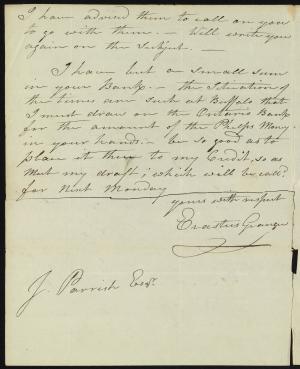 I have advised them to call on you
to go with them. – Will write you
again on the Subject. –
I have but a small sum
in your Bank – the Situation of
the times are such at Buffalo that
I must draw on the Ontario Bank
for the amount of the Phelps Money
in your hands – be so good as to
place it there to my Credit, so as
meet my draft; which will be call.d
for Next Monday
yours with respect
Erastus Granger
J. Parrish Esqr.